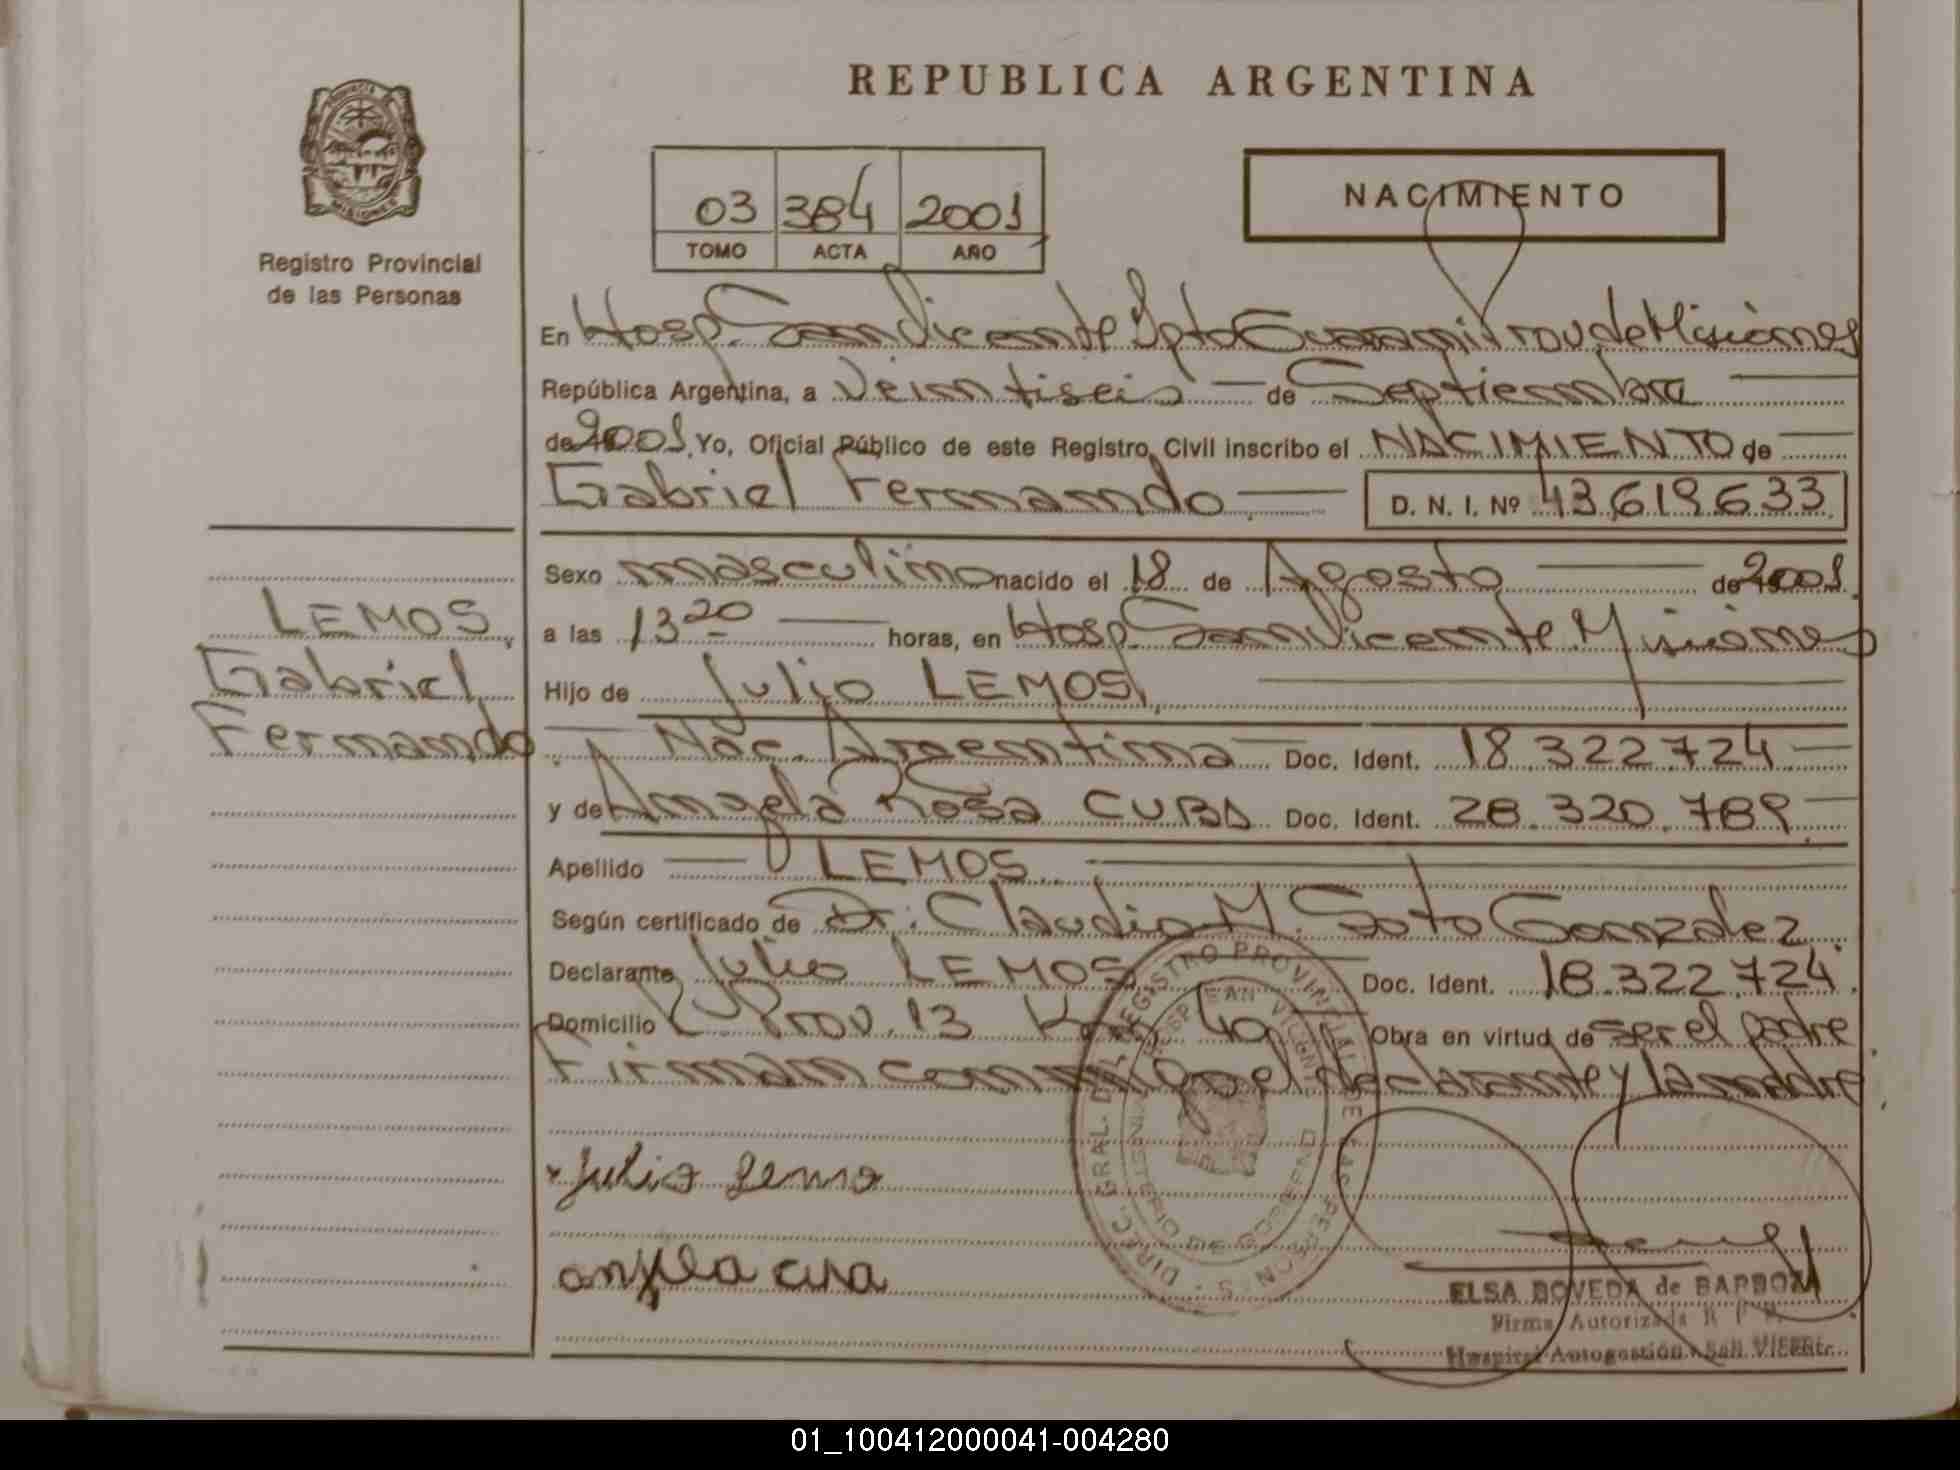 REPUBLICA ARGENTINA
PROVINCIA
MISIONES
Registro Provincial
de las Personas
03 384 2001
TOMO ACTA AÑO
NACIMIENTO
En Hosp. San Vicente Dpto Guarani Prov de Misiones
República Argentina, a Veintiseis de Septiembre
de 2001 Yo, Oficial Público de este Registro Civil inscribo el NACIMIENTO de
Gabriel Fernando. D. N. I. Nº 43.619.633.
Sexo masculino nacido el 18 de Agosto de 2001.
a las 13 20 horas, en Hosp. San Vicente. Misiones
Hijo de Julio LEMOS,
Nac. Argentina Doc. Ident. 18.322.724
y de Angela Rosa CUBA Doc. Ident. 28.320.789.
Apellido LEMOS.
Según certificado de Dr. Claudio M. Soto Gonzalez.
Declarante Julio LEMOS Doc. Ident. 18.322.724.
Domicilio R. Prov. 13 Km 40 Obra en virtud de ser el padre
Firman conmigo el declarante y la madre
LEMOS,
Gabriel
Fernando
Julio Lemo
angela cuva
DIREC. GRAL. DEL REGISTRO PROVINCIAL DE LAS PERSONAS
HOSP. SAN VICENTE
MINISTERIO DE GOBIERNO
ELSA BOVEDA de BARBOZA
Firma Autorizada R P P.
Hospital Autogestión San Vicente
01_100412000041-004280